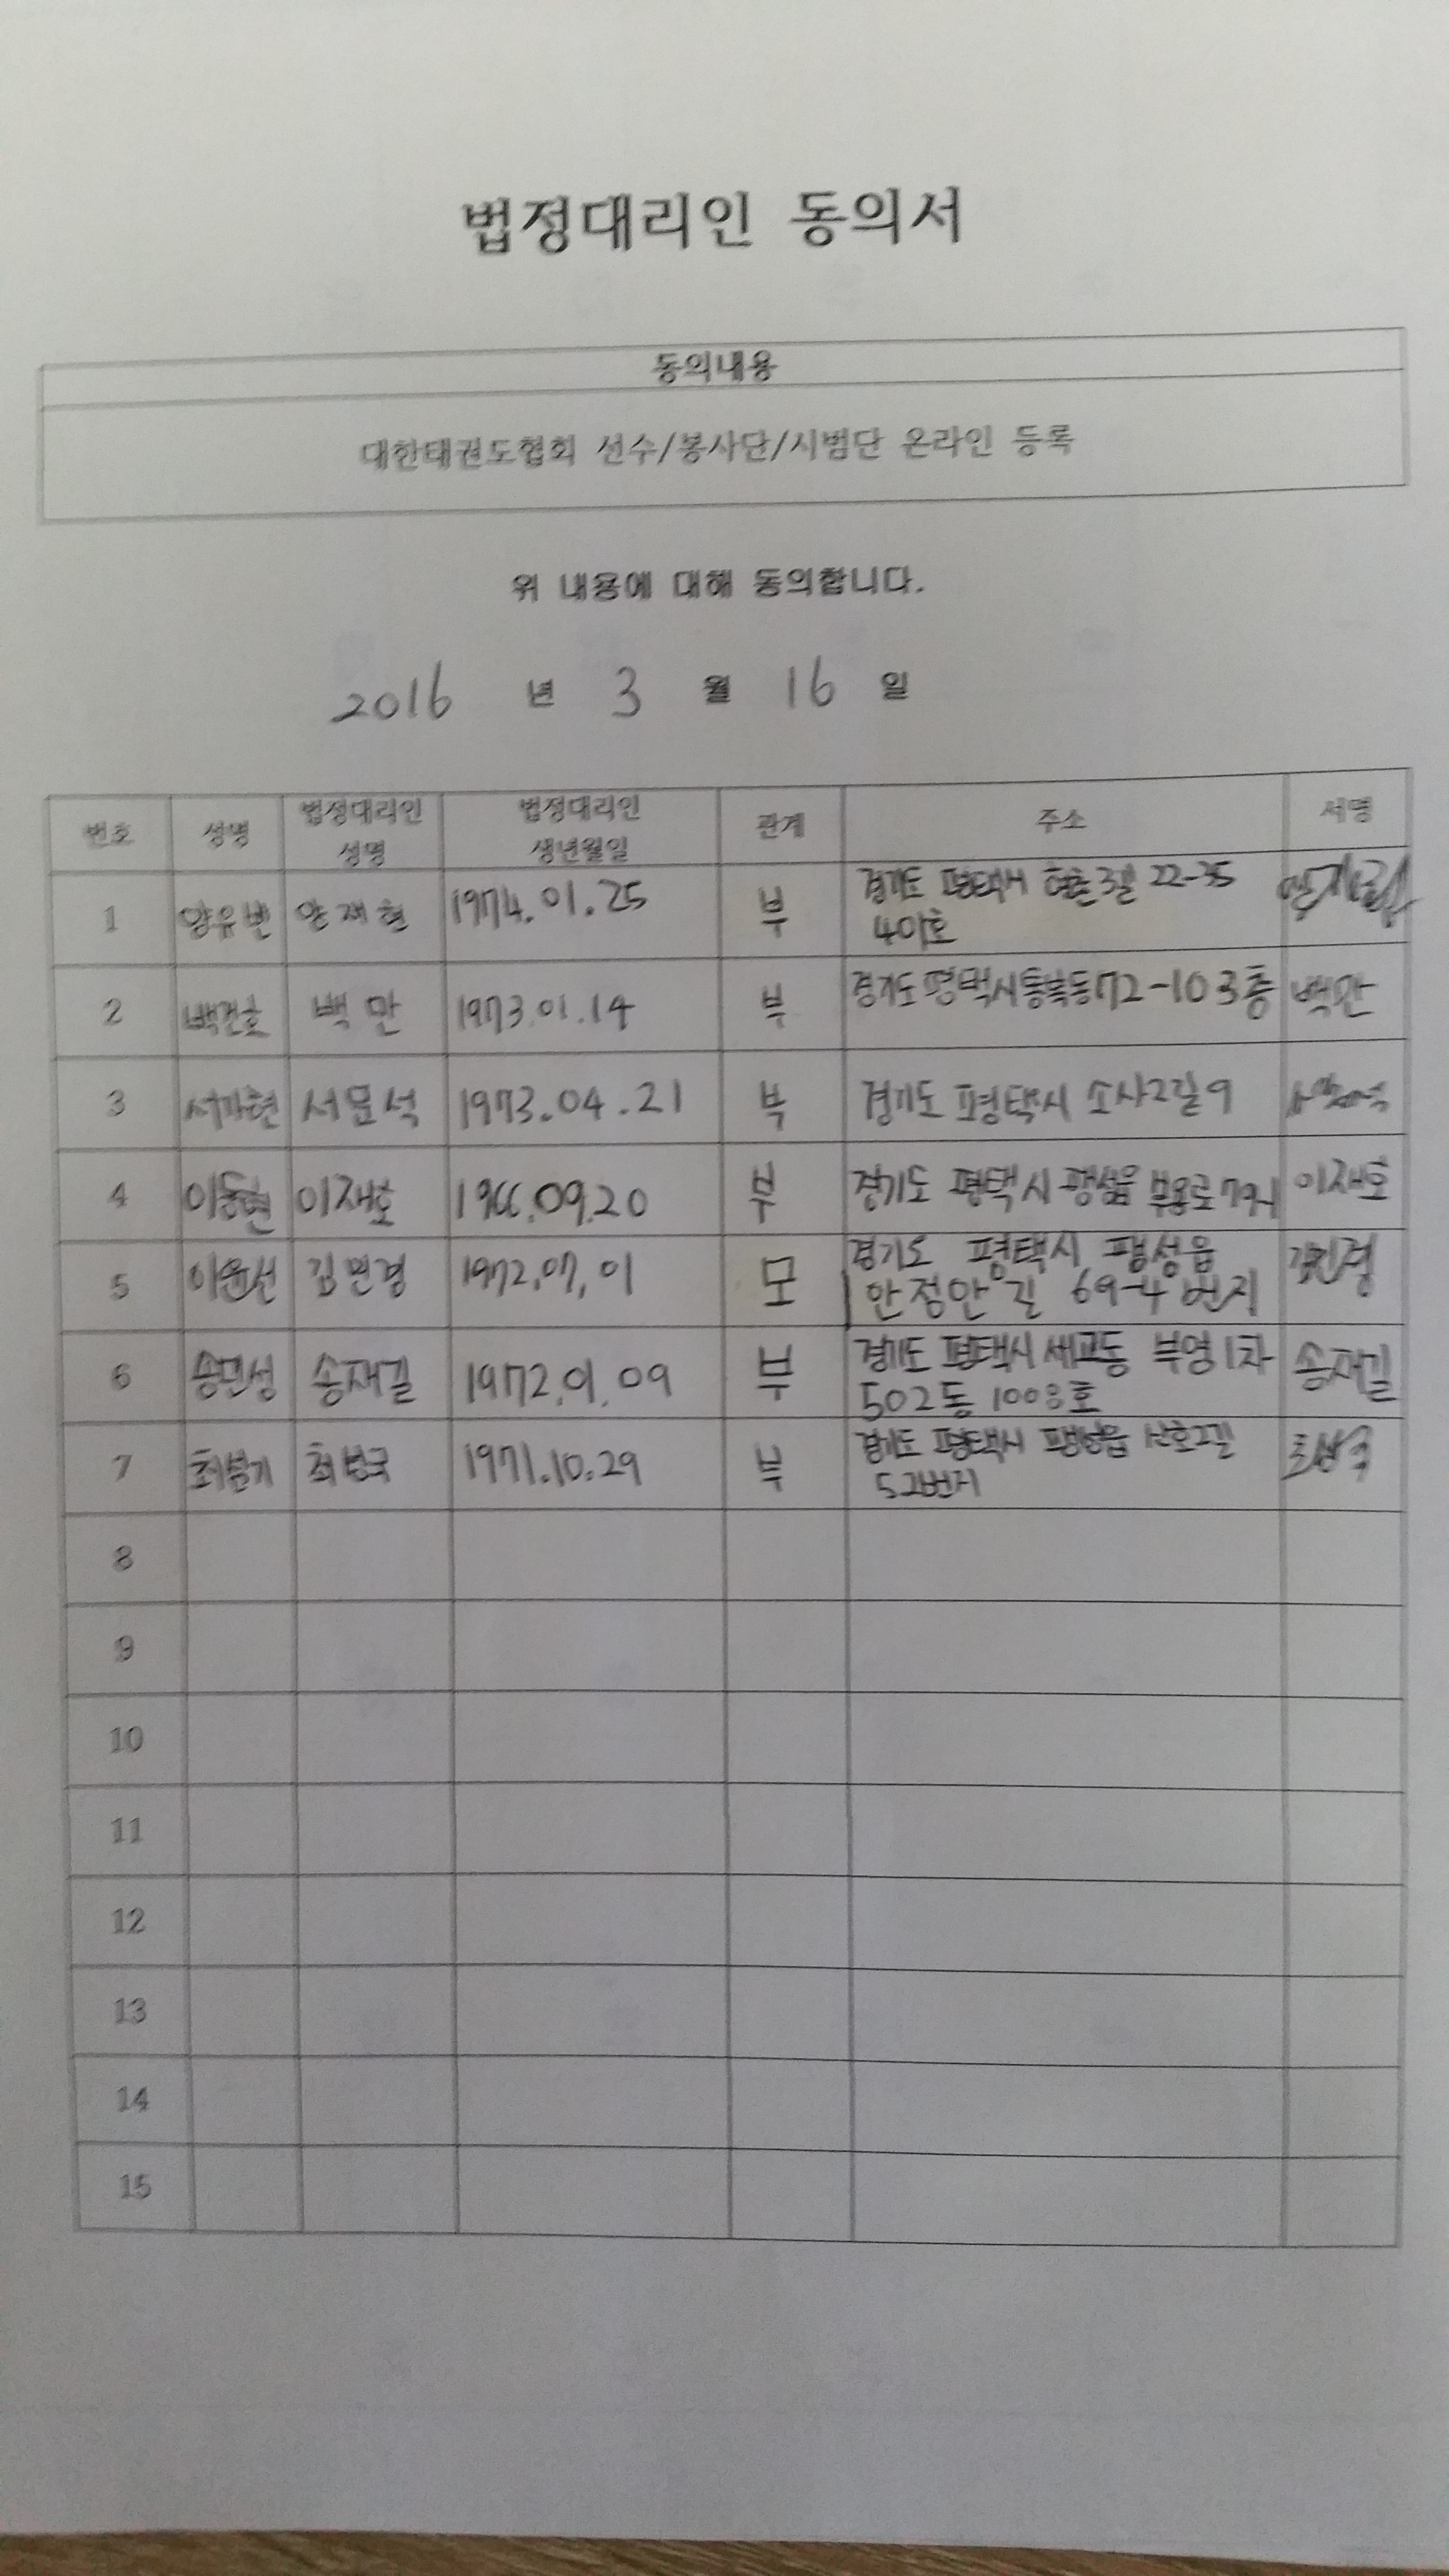 법정대리인 동의서
동의내용
대한태권도협회 선수/봉사단/시범단 온라인 등록
위 내용에 대해 동의합니다.
2016 년 3 월 16 일
번호 성명 법정대리인 성명 법정대리인 생년월일 관계 주소 서명
1 양유빈 양재현 1974.01.25 부 경기도 평택시 현촌3길 22-35
401호
2 백건호 백만 1973.01.14 부 경기도 평택시 통복동 72-10 3층 백만
3 서문석 1973.04.21 부 경기도 평택시 소사2길 9
4 이동현 이재호 1966.09.20 부 경기도 평택시 팽성읍 부용로 이재호
5 이윤선 김민경 1972.07.01 모 경기도 평택시 팽성읍
안정안길 69-4번지
6 송민성 송재길 1972.01.09 부 경기도 평택시 세교동 부영1차 송재길
502동 1003호
7 1971.10.29 부 경기도 평택시 팽성읍
52번지
8
9
10
11
12
13
14
15